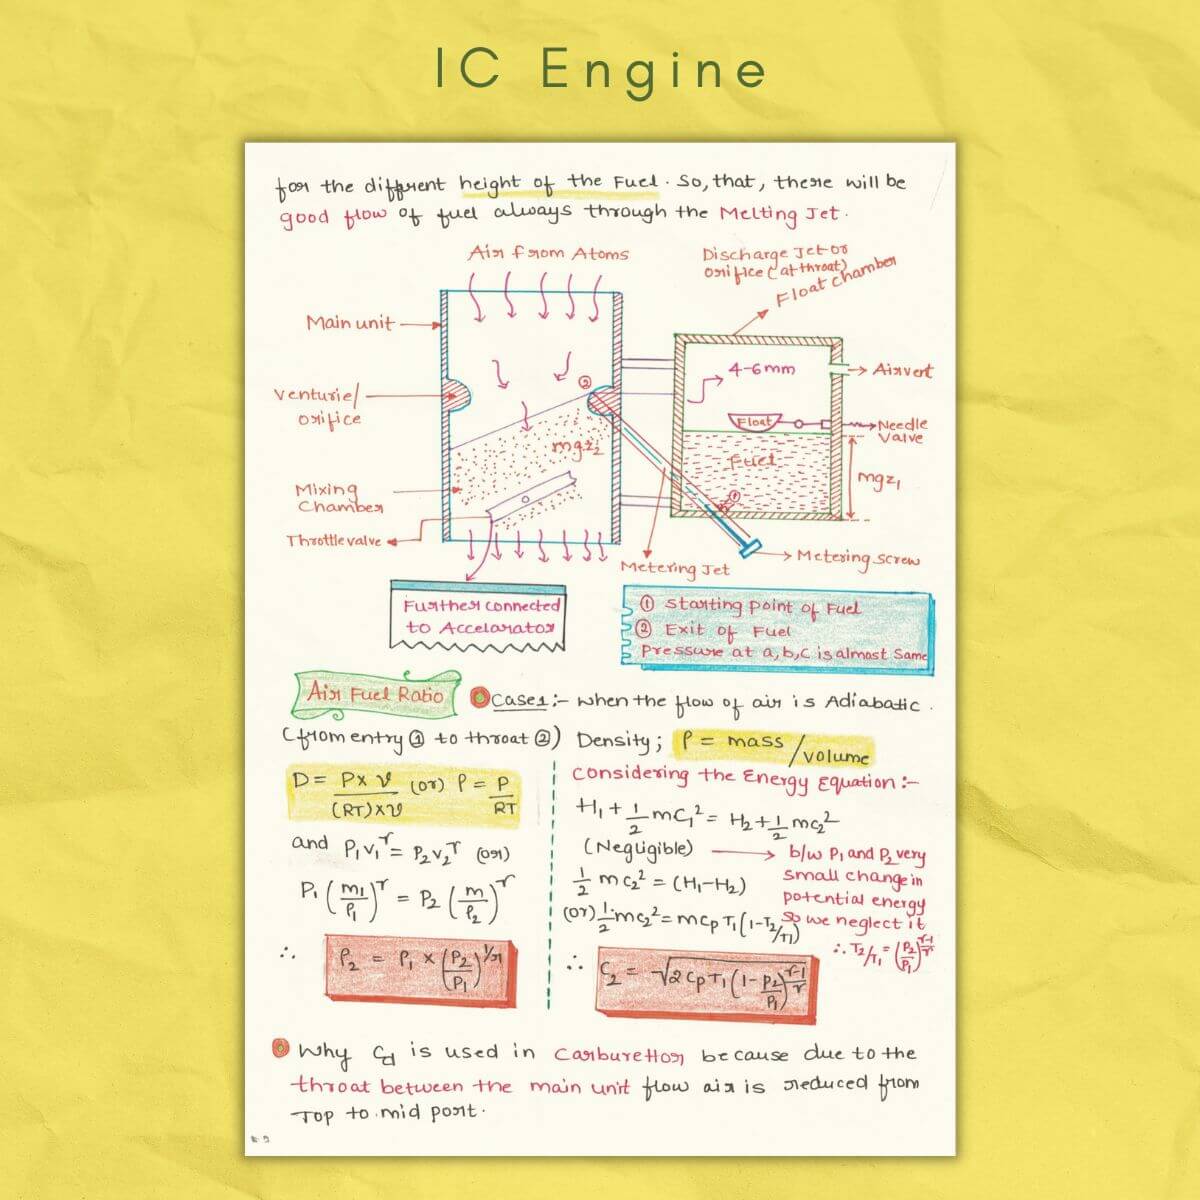 IC Engine
for the different height of the Fuel. So, that, there will be
good flow of fuel always through the Melting Jet.
Air from Atoms
Discharge Jet or
orifice (at throat)
Float chamber
Main unit
4-6mm
Airvent
②
Venturie/
orifice
Float
Needle
Valve
mgz₂
Fuel
mgz₁
Mixing
Chamber
①
Throttle valve
Metering Jet
Metering screw
Further connected
to Accelarator
① Starting point of Fuel
② Exit of Fuel
Pressure at a,b,c is almost same
Air Fuel Ratio
Case1:- when the flow of air is Adiabatic.
(from entry ① to throat ②) Density; ρ = mass/volume
D = P×v/(RT)×v (or) ρ = P/RT
and P₁v₁^r = P₂v₂^r (or)
P₁(m₁/ρ₁)^r = P₂(m/ρ₂)^r
∴ ρ₂ = ρ₁ × (P₂/P₁)^1/r
Considering the Energy Equation:-
H₁ + 1/2 mC₁² = H₂ + 1/2 mc₂²
(Negligible)
b/w P₁ and P₂ very
small change in
potential energy
so we neglect it
1/2 mc₂² = (H₁-H₂)
(or) 1/2 mc₂² = mcpT₁(1-T₂/T₁)
∴ T₂/T₁ = (P₂/P₁)^r-1/r
∴ C₂ = √2CpT₁(1-P₂/P₁)^r-1/r
Why Cd is used in Carburettor because due to the
throat between the main unit flow air is reduced from
Top to mid port.